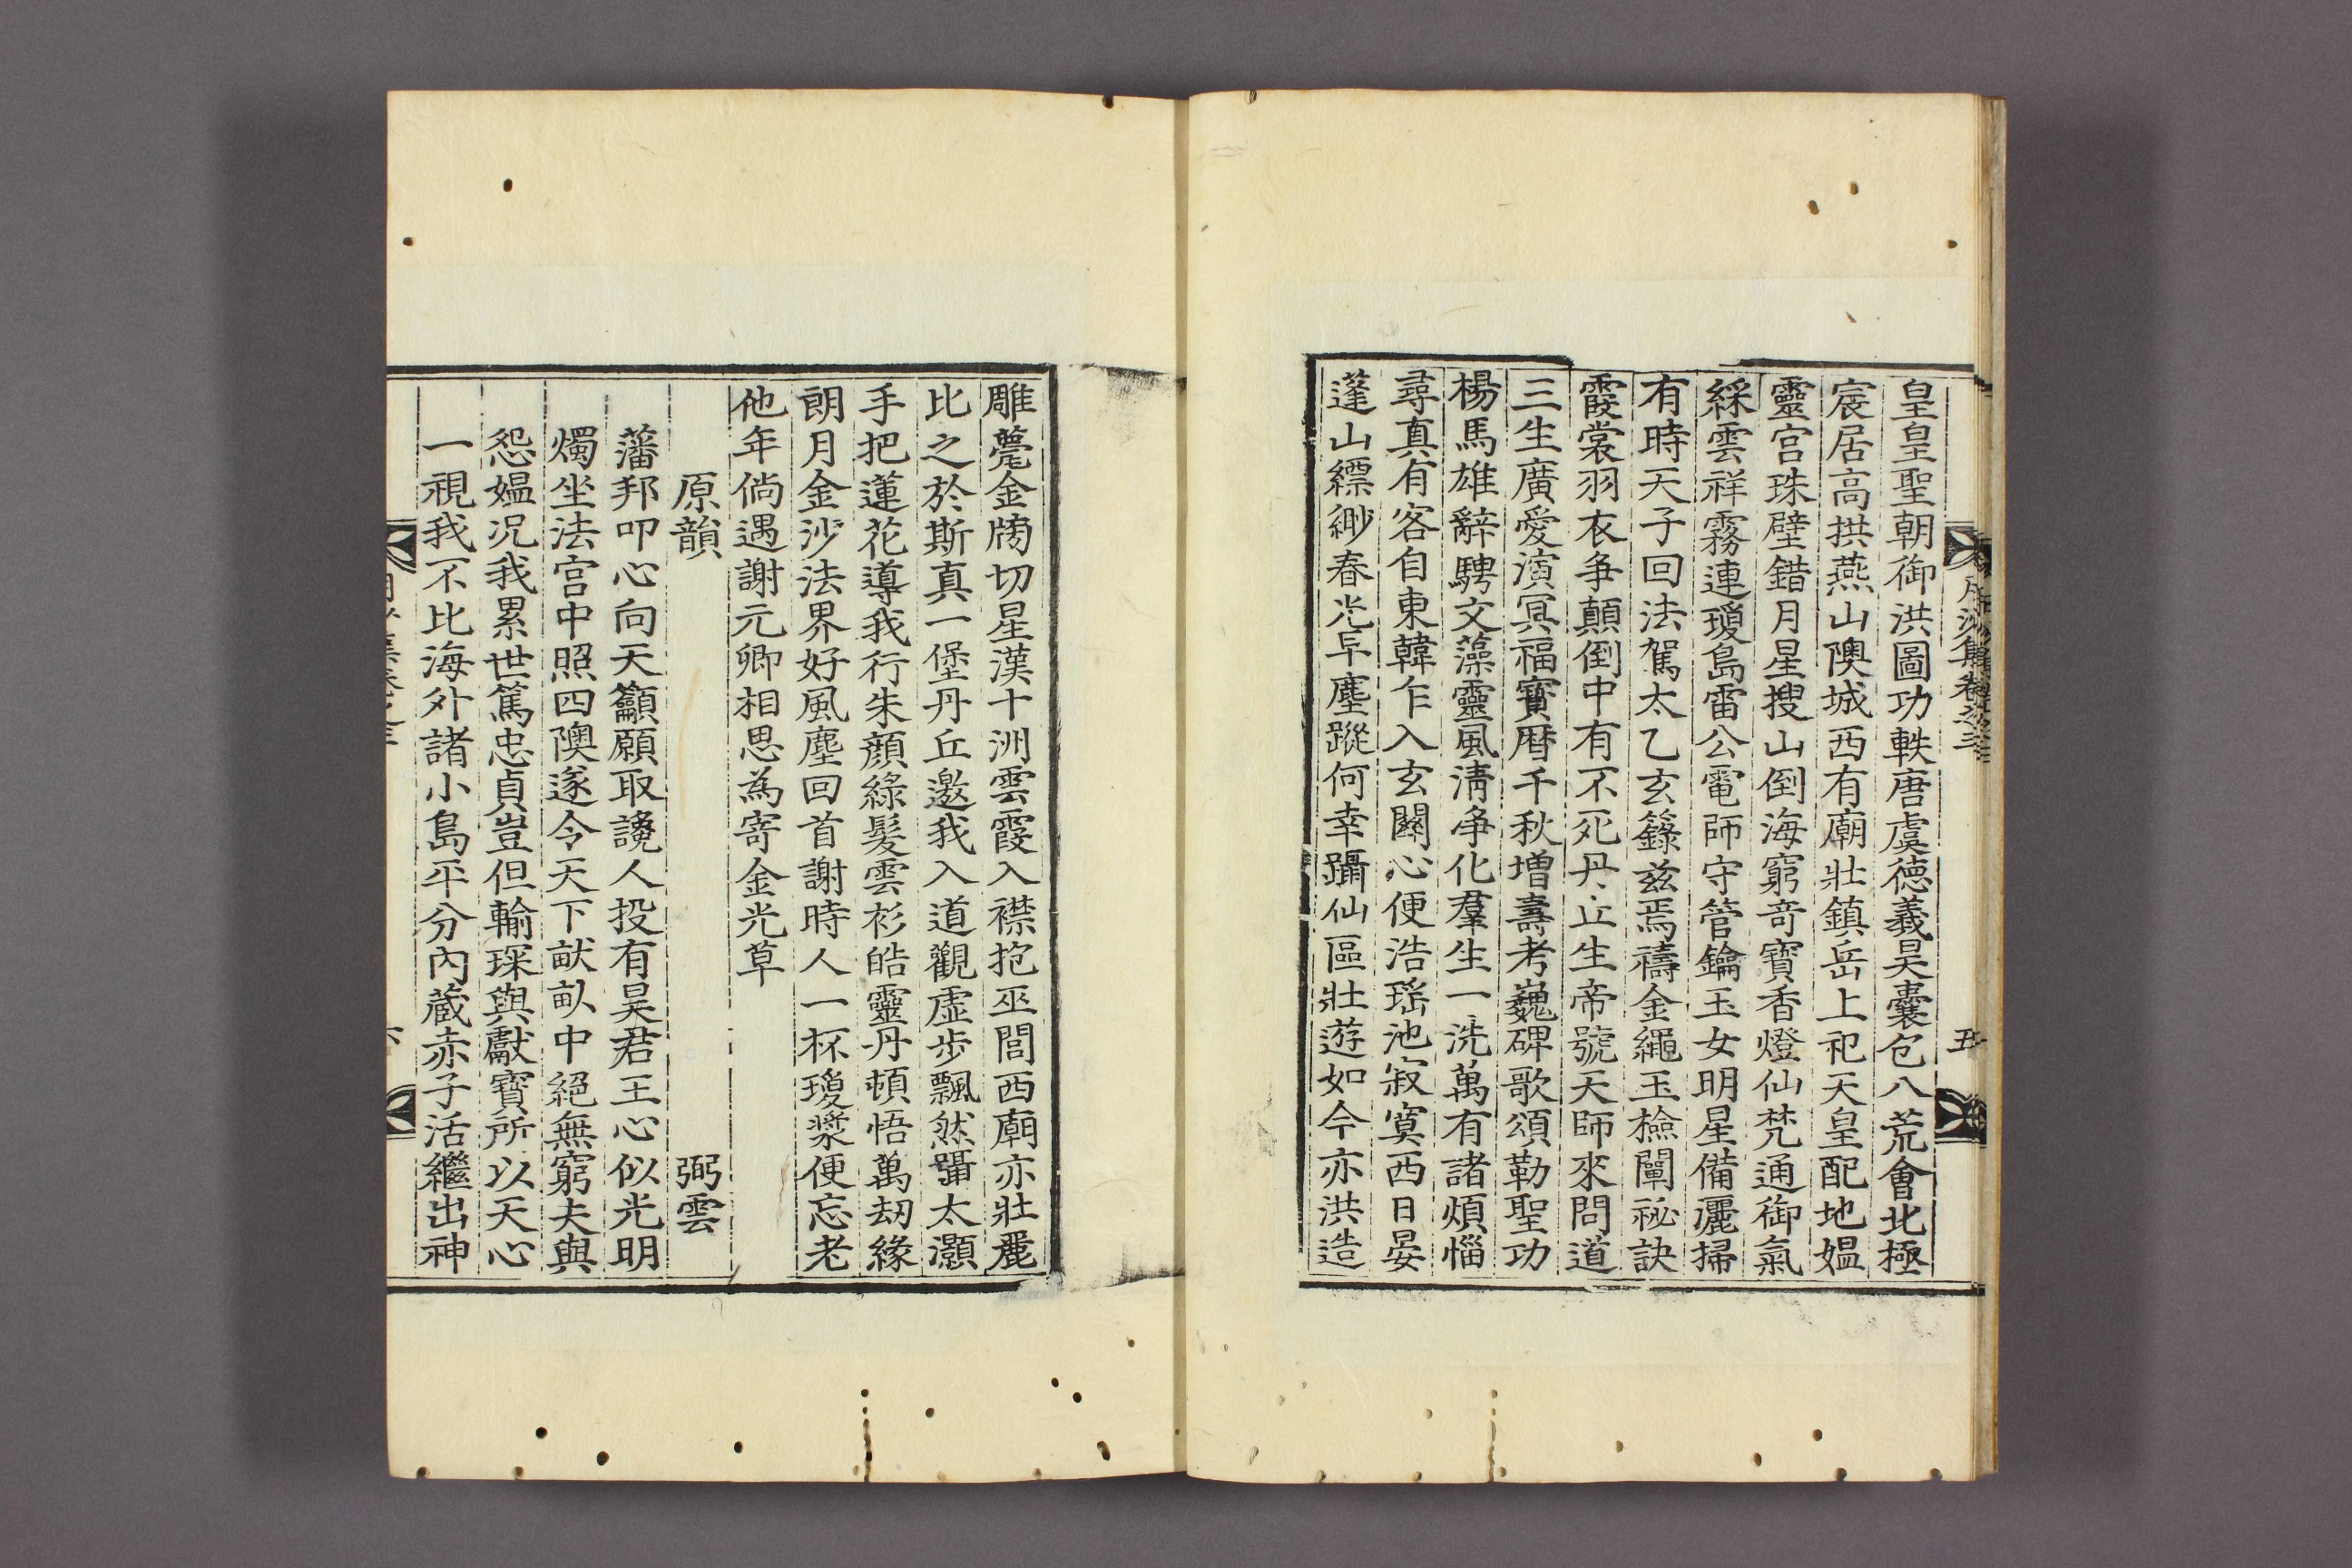 皇皇聖朝御洪圖功軼唐虞德羲昊囊包八荒會北極
宸居高拱燕山隩城西有廟壯鎮岳上祀天皇配地媼
靈宮珠壁錯月星搜山倒海窮奇寶香燈仙梵通御氣
綵雲祥霧連瓊島雷公電師守管鑰玉女明星備灑掃
有時天子回法駕太乙玄籙玆焉禱金繩玉檢闡祕訣
霞裳羽衣爭顛倒中有不死丹丘生帝號天師來問道
三生廣愛演冥福寶曆千秋增壽考巍碑歌頌勒聖功
楊馬雄辭騁文藻靈風淸淨化羣生一洗萬有諸煩惱
尋真有客自東韓乍入玄關心便浩瑤池寂寞西日晏
蓬山縹緲春光早塵蹤何幸躡仙區壯遊如今亦洪造
雕甍金牓切星漢十洲雲霞入襟抱巫閭西廟亦壯麗
比之於斯真一堡丹丘邀我入道觀虛步飄然躡太灝
手把蓮花導我行朱顔綠髮雲衫皓靈丹頓悟萬刼緣
朗月金沙法界好風塵回首謝時人一杯瓊漿便忘老
他年倘遇謝元卿相思為寄金光草
原韻 弼雲
藩邦叩心向天籲願取讒人投有昊君王心似光明
燭坐法宮中照四隩遂令天下畎畝中絕無窮夫與
怨媼况我累世篤忠貞豈但輸琛與獻寶所以天心
一視我不比海外諸小島平分內蔵赤子活繼出神